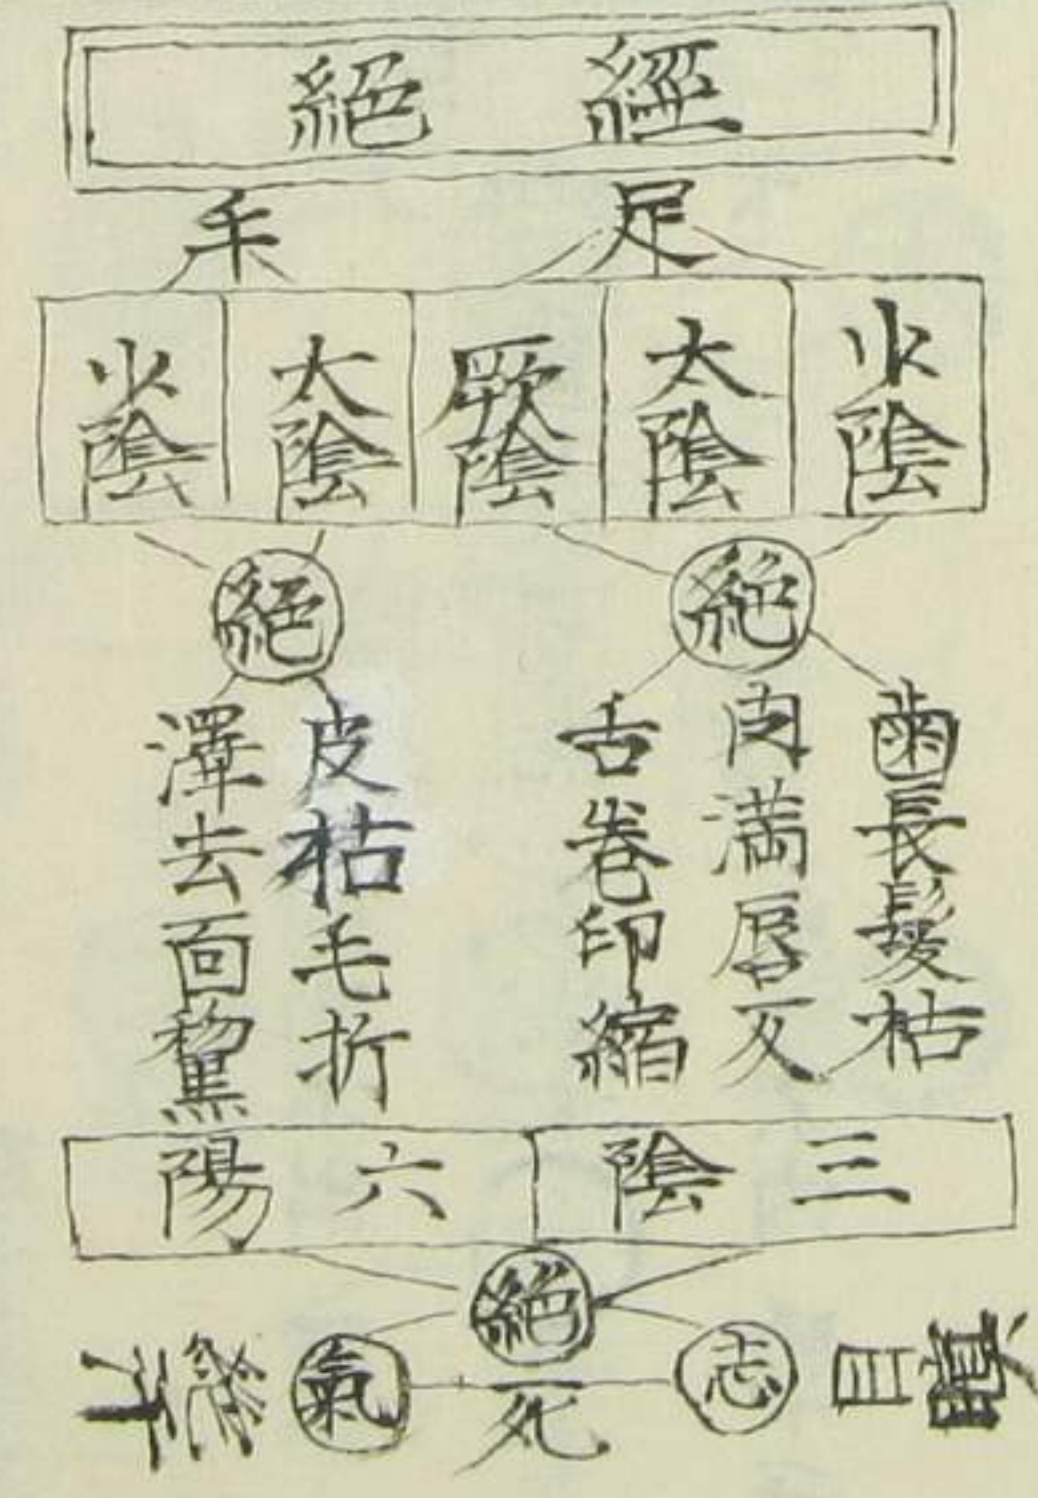 經絕
足手
少陰
太陰
厥陰
太陰
少陰
絕
絕
齒長髮枯
肉滿唇反
舌卷卵縮
皮枯毛折
澤去面黧
三陰
六陽
絕
志
死
氣
目
汗